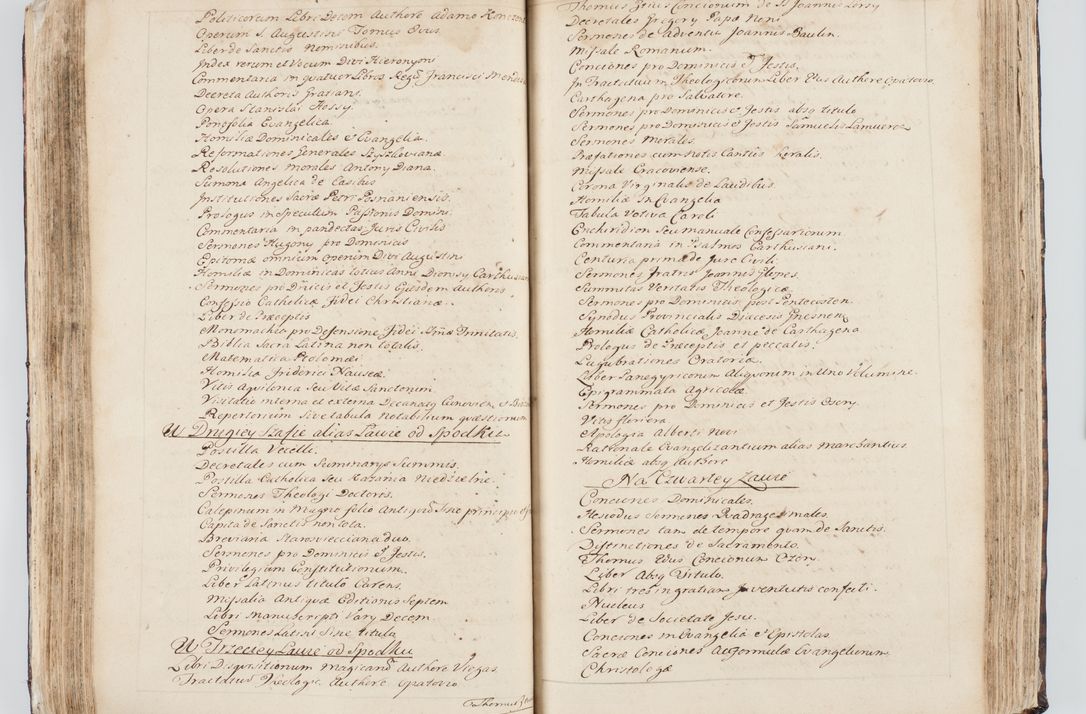 Politicorum Libri Decem Authore Adamo
Operum S. Augustini Tomus
Liber de Sanctis Nominibus.
Index rerum et Vocum Divi Hieronymi
Commentaria in quatuor Libros Regũ Francisci
Decreta Authoris Gratiani.
Opera Stanislai Hossy.
Evangelica
Homiliæ Dominicales et Evangelia.
Reformationes Generales Szyszkovianæ
Resolutiones Morales Antony Diana.
Summa Angelica de Casibus
Institutiones Sacræ Petri Posnaniensis.
Prologus in Speculum Passionis Domini.
Commentaria in pandectas Juris Civilis
Sermones Hugony pro Dominicis
Epitomæ omnium operum Divi Augustini
Homiliæ in Dominicas totius Anni Dionisy
Sermones pro Dñicis et Festis Ejusdem Authoris
Confessio Catholicæ Fidei Christianæ.
Liber de Præceptis
Monomachia pro Defensione Fidei Trinitatis.
Biblia Sacra Latina non totalis.
Matematica Ptolomæi
Homiliæ Friderici Nauseæ.
Vitis Aquilonia Seu Vitæ Sanctorum
Visitatio interna et externa Decanatq
Repertorium Sive tabula notabilium quæstionum
W Drugiey Szafie alias Lawie od Spodku
Postilla
Decretales cum Summarys Summis.
Postilla Catholica Seu Kazania Niedzielne.
Sermones Theologi Doctoris.
Calepinum in Magno folio Antiquũ Sine principio
Capita de Sanctis non tota.
Breviaria Staroswiecciana duo.
Sermones pro Dominicis et Festis.
Privilegium Constitutionum.
Liber Latinus titulo Carens.
Missalia Antiquæ Editionis Septem
Libri Manuscripti Vary Decem.
Sermones Latini Sine titulo
W Trzeciey Lawie od Spodku
Libri Disquisitionum Magicarũ Authore
Tractatus Theologic Authore
Thomus
Thomus Concionum de S Joannis
Decretales Gregory Papæ Noni
Sermones de Adventu Joannis Raulin.
Missale Romanum.
Conciones pro Dominicis et Festis.
In Tractatum Theologicorum Liber Authore
Carthagena pro Salvatore.
Sermones pro Dominicis et Festis absq titulo
Sermones pro Dominicis et Festis Samuelis
Sermones Morales.
Præfationes cum Notis Cantus
Missale Cracoviense.
Corona Virginalis de Laudibus.
Homiliæ in Evangelia
Tabula Votiva Caroli
Enchiridion Seu manuale Confessariorum
Commentaria in Psalmos Carthusiani.
Centuria prima de Jure Civili
Sermones Fratris Joannis
Summitas Veritatis Theologicæ
Sermones pro Dominicis post Pentecosten.
Synodus Provincialis Diæcesis Gnesnen
Homiliæ Catholicæ Joanne de Carthagena
Prologus de Præceptis et peccatis.
Lugubrationes Oratoriæ.
Liber Panegyricorum Aliquorum in Uno Volumine.
Epigrammata Agricolæ
Sermones pro Dominicis et Festis
Vitis florida
Apologia Alberti
Rationale Evangelizantium alias Marchantius
Homiliæ absq Authore
Na Czwartey Lawie
Conciones Dominicales.
Sermones Quadragesimales.
Sermones tam de tempore quam de Sanctis.
Distinctiones de Sacramento.
Thomus Concionum
Liber Absq Titulo.
Libri tres in gratiam Juventutis confecti.
Nucleus
Liber de Societate Jesu.
Conciones in Evangelia et Epistolas
Sacræ Conciones Evangeliorum
Christologæ